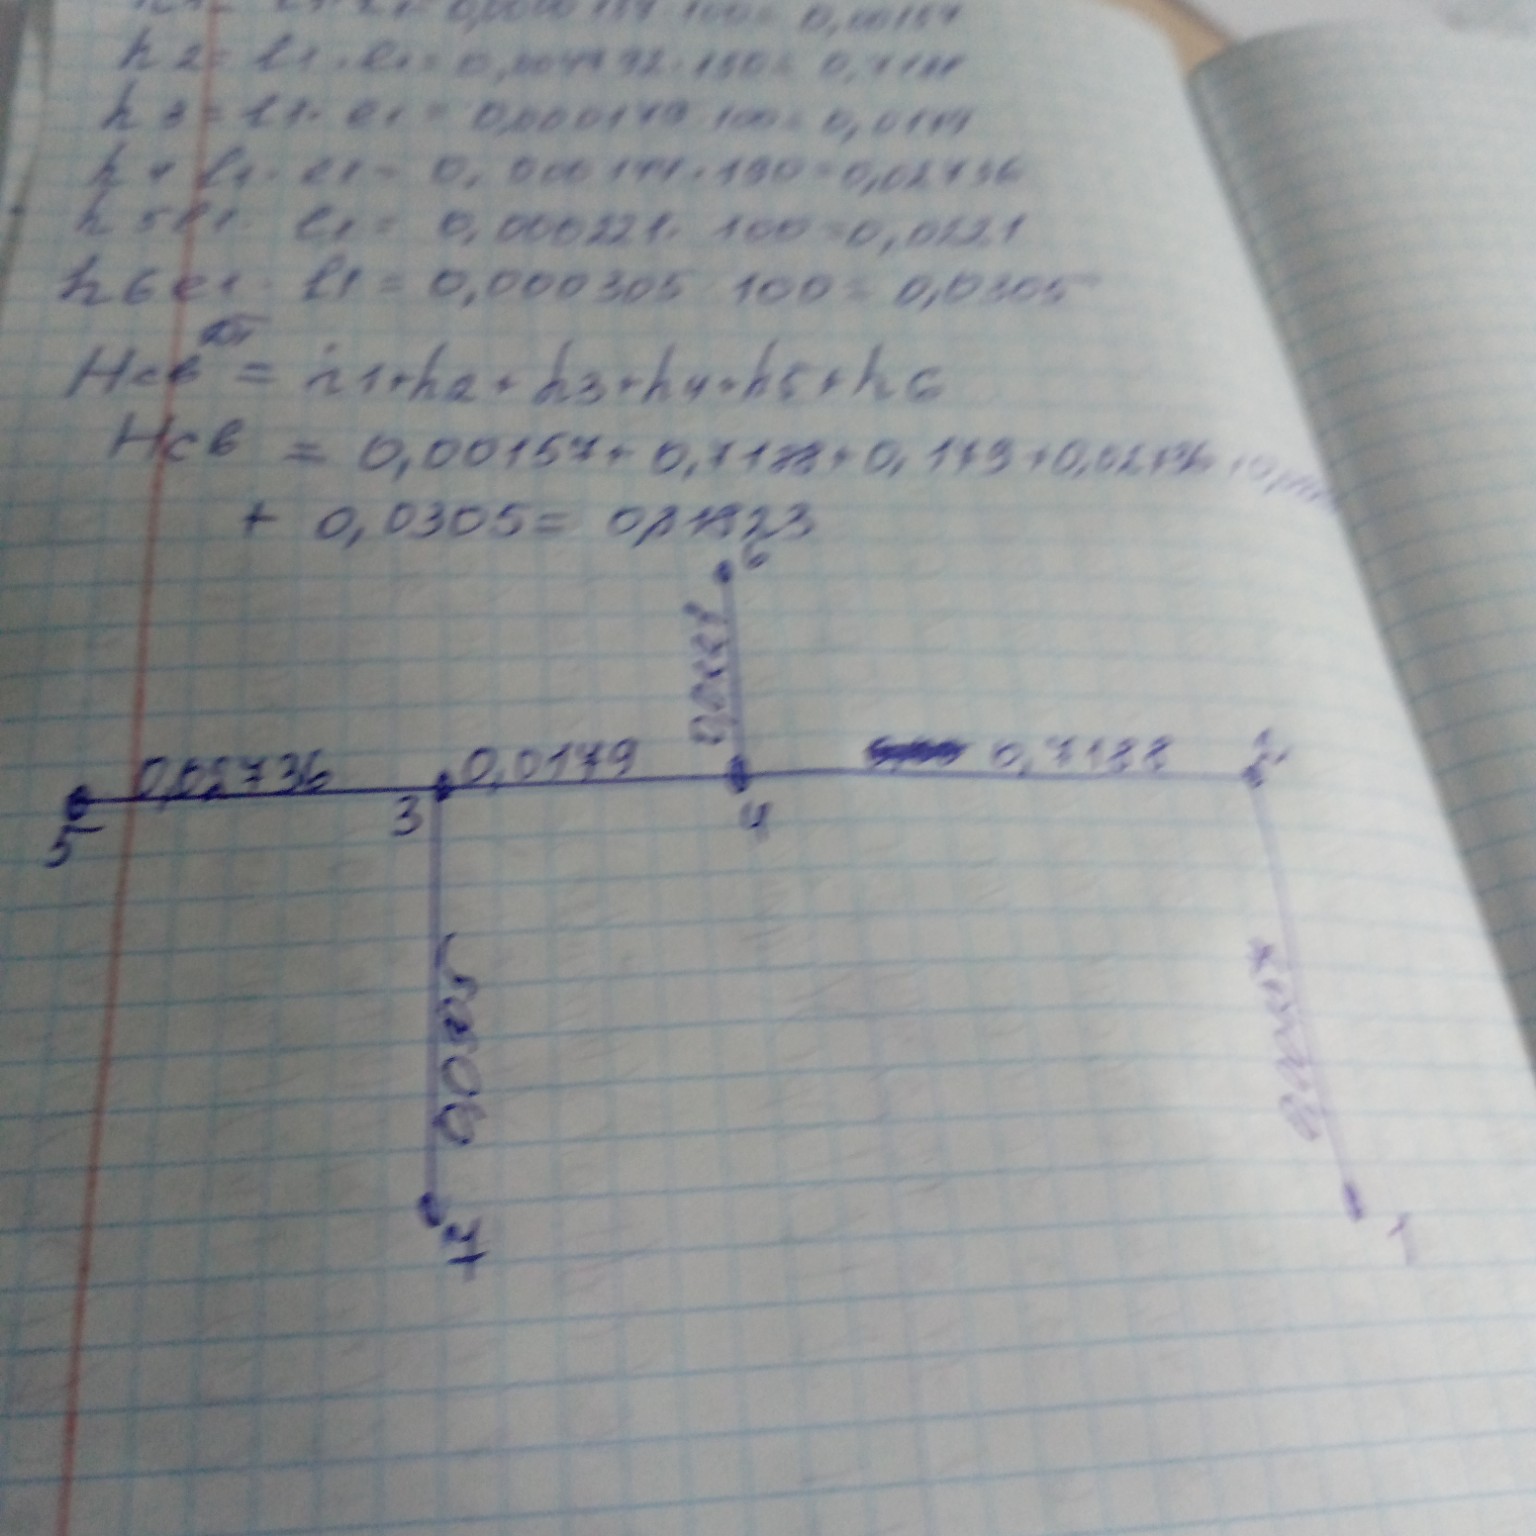 h2 = l1 · e1 = 0,004792 · 150 = 0,7188
h3 = l1 · e1 = 0,000179 · 100 = 0,0179
h4 l1 · e1 = 0,000144 · 190 = 0,02736
h5 l1 · e1 = 0,000221 · 100 = 0,0221
h6 e1 · l1 = 0,000305 100 = 0,0305
Нсв = h1+h2+h3+h4+h5+h6
Нсв = 0,00157+0,7188+0,179+0,02736
+ 0,0305=
6
0,0221
0,02736 0,0179 0,7188 2
5 3 4
0,0305
0,00157
7 1